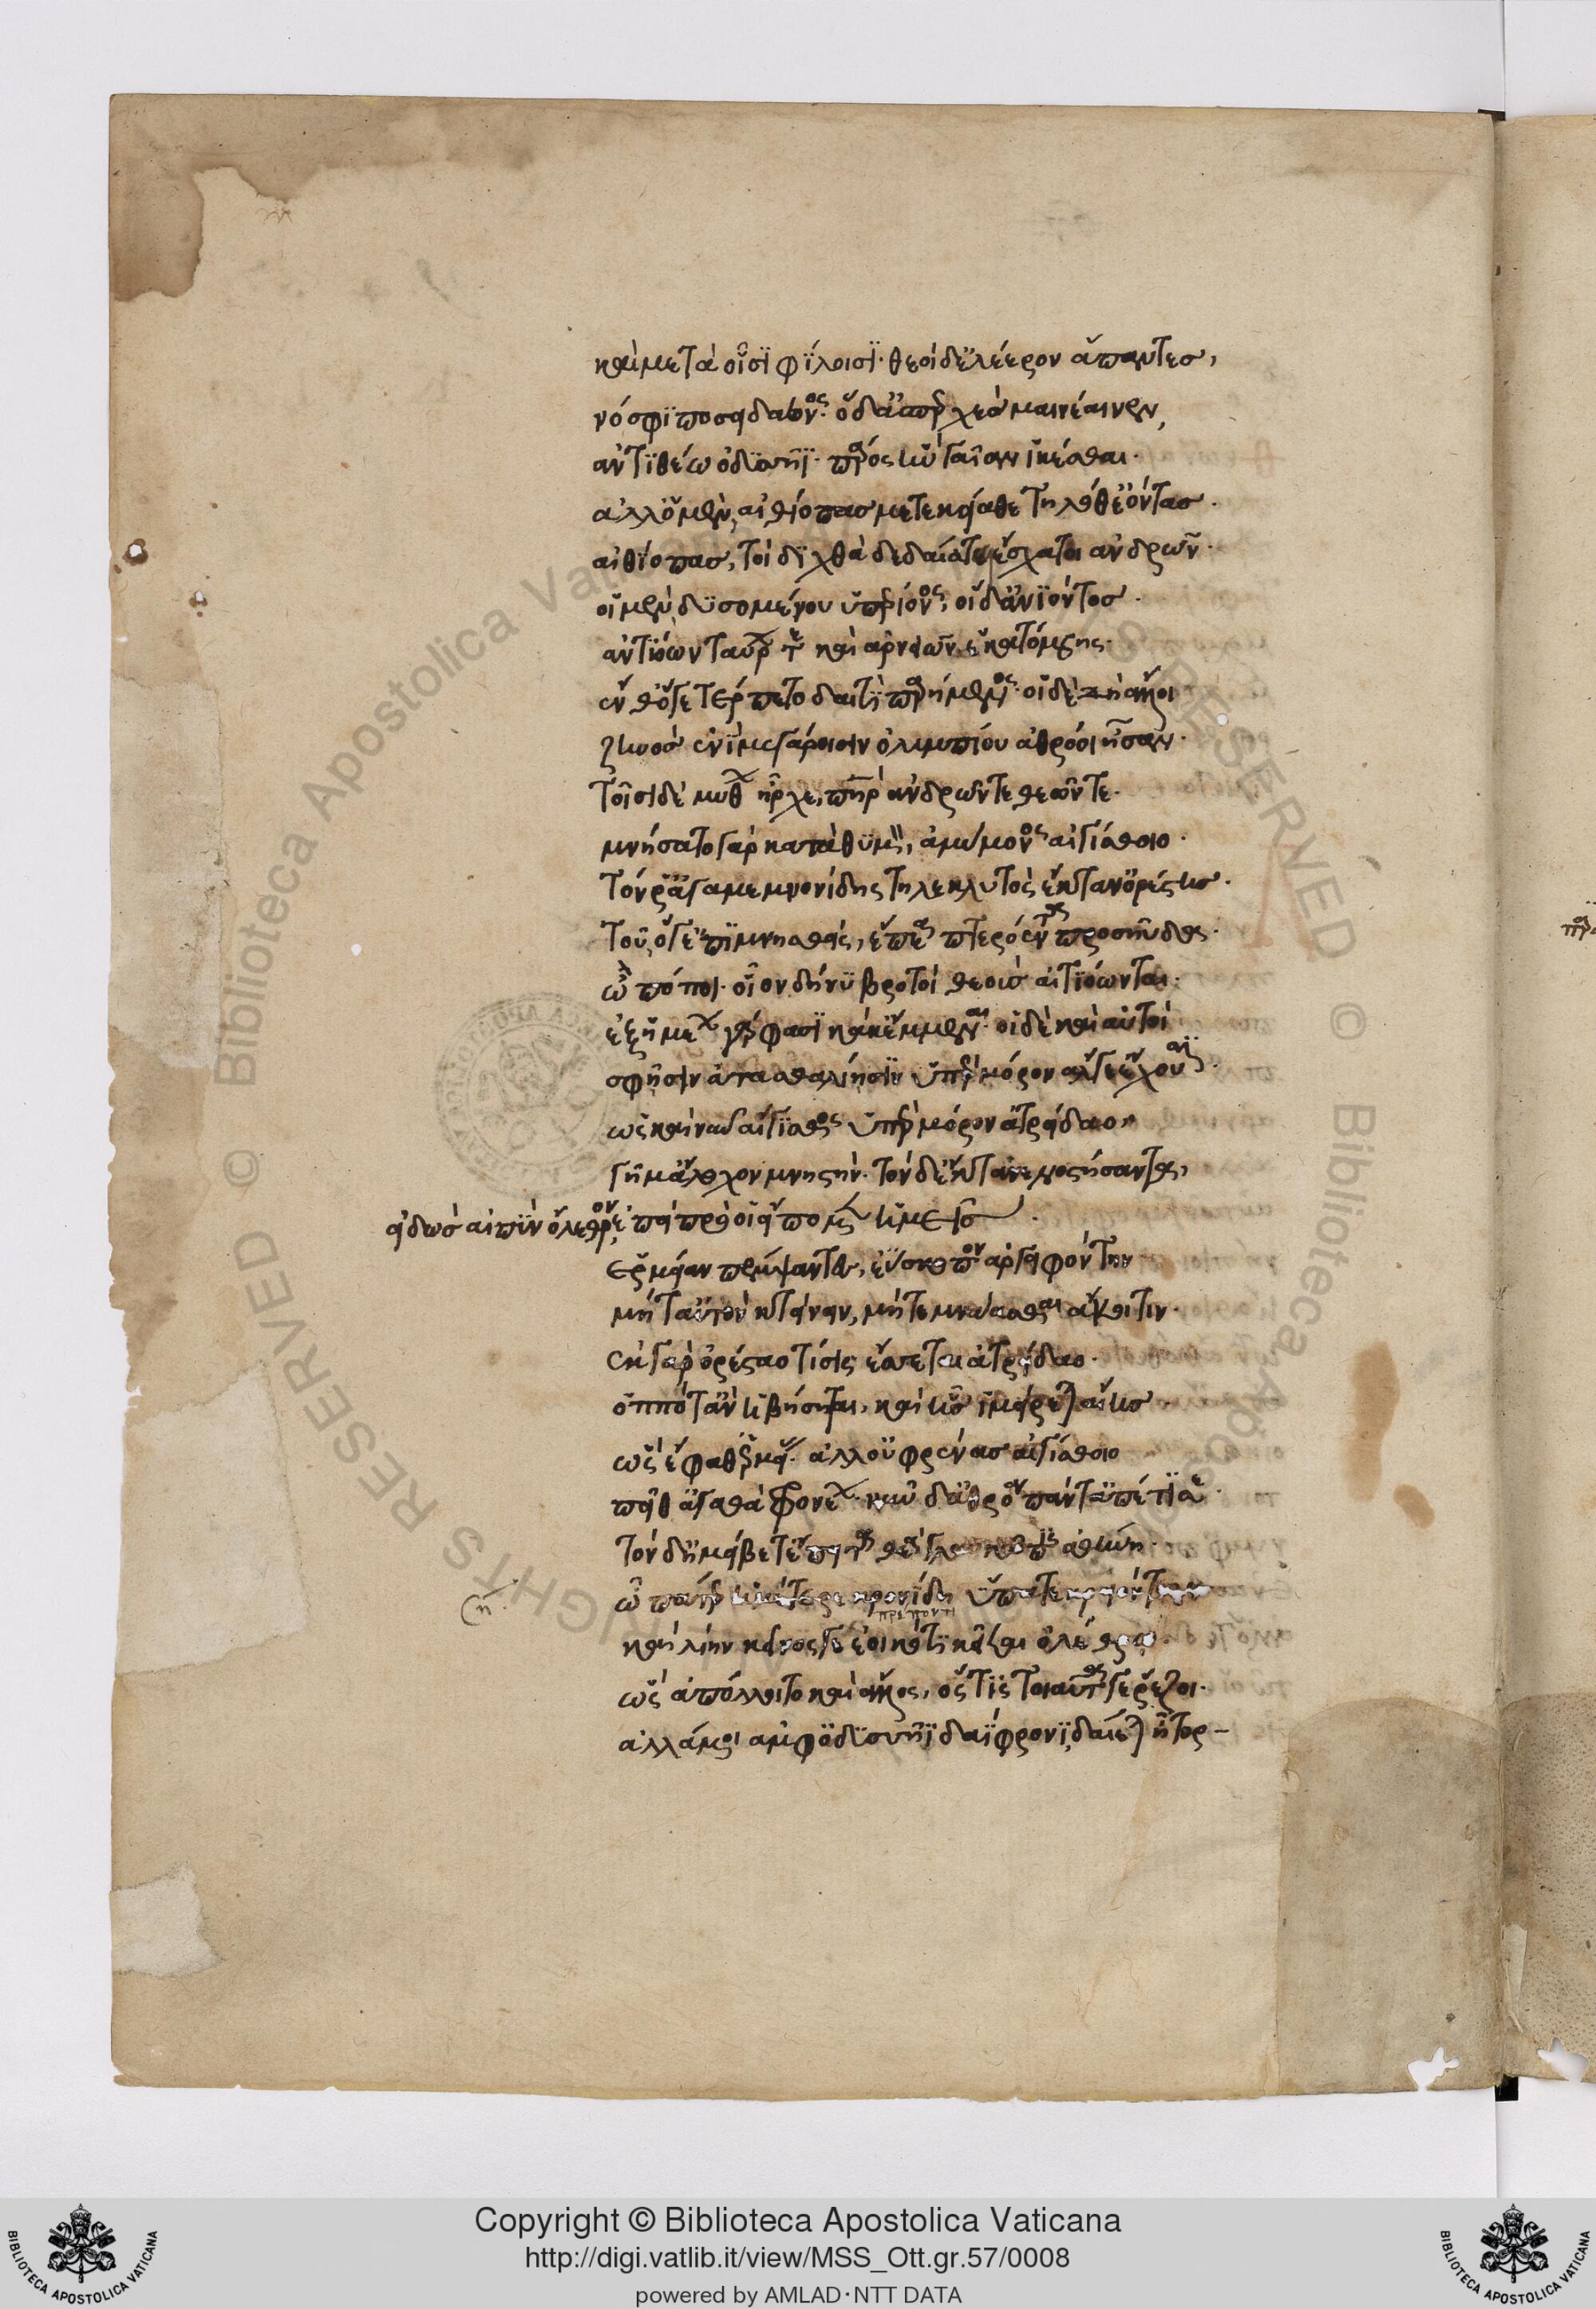 καὶ μετὰ οἷσϊ φΐλοισϊ· θεοὶ δ' ἐλέερον ἅπαντες,
νόσφϊ ποσειδάωνος· ὁ δ' ἀσπερχὲς μαινέαινεν,
ἀντϊθέω ὀδϋσῆϊ· πάρος ἣν γαῖαν ἱκέσθαι·
ἀλλ' ὁ μὲν, αἰθίοπας μετεκείαθε τηλόθ' ἐόντας·
αἰθΐοπας, τοὶ δϊχθὰ δεδαίατο ἔσχατοι ἀνδρῶν·
οἱ μὲν, δϋσομένου ὑπερίονος, οἱ δ' ἀνϊόντος·
ἀντϊόων ταύρων τε καὶ ἀρνειῶν ἑκατόμβης·
ἔνθ' ὅγε τέρπετο δαιτὶ παρήμενος· οἱ δὲ δὴ ἄλλοι
ζηνὸς ἐνῒ μεγάροισιν ὀλυμπίου ἀθρόοι ἦσαν·
τοῖσι δὲ μύθων ἦρχε, πατὴρ ἀνδρῶν τε θεῶν τε·
μνήσατο γὰρ κατὰ θϋμὸν, ἀμύμονος αἰγίσθοιο·
τόν ῥ' ἀγαμεμνονίδης τηλεκλυτὸς ἔκταν' ὀρέστης·
τοῦ, ὅγ' ἐπϊμνησθεὶς, ἔπεα πτερόεντα προσηύδα·
ὢ πόποι· οἷον δή νϋ βροτοὶ θεοὺς αἰτϊόωνται·
ἐξ ἡμέων γάρ φασϊ κάκ' ἔμμεναι· οἱ δὲ καὶ αὐτοὶ
σφῇσιν ἀτασθαλίῃσϊν ὑπὲρ μόρον ἄλγε' ἔχουσϊ·
ὡς καὶ νῦν αἴγϊσθος ὑπὲρ μόρον ἀτρείδαο,
γῆμ' ἄλοχον μνηστὴν· τὸν δ' ἔκτανε νοστήσαντα,
εἰδὼς αἰπῢν ὄλεθρον, ἐπεὶ πρό οἱ εἴπομεν ἡμεῖς·
ἑρμείαν πέμψαντες, ἐΰσκοπον ἀργειφόντην
μήτ' αὐτὸν κτείνειν, μήτε μνάασθαι ἄκοιτιν·
ἐκ γὰρ ὀρέσταο τίσις ἔσσεται ἀτρείδαο·
ὁππότ' ἂν ἡβήσηται, καὶ ἧς ἱμείρεται αἴης
ὣς ἔφαθ' ἑρμείας· ἀλλ' οὐ φρένας αἰγίσθοιο
πεῖθ' ἀγαθὰ φρονέων· νῦν δ' ἀθρόα πάντ' ἀπέτϊσε·
τὸν δ' ἠμείβετ' ἔπειτα θεὰ γλαυκῶπις ἀθήνη·
ὦ πάτερ ἡμέτερε κρονΐδη ὕπατε κρειόντων
καὶ λίην κεῖνός γε ἐοικότϊ κεῖται ὀλέθρῳ
ὡς ἀπόλοιτο καὶ ἄλλος, ὅς τϊς τοιαῦτά γε ῥέζοι·
ἀλλά μοι ἀμφ' ὀδϋσῆϊ δαΐφρονϊ, δαίεται ἦτορ–
Copyright © Biblioteca Apostolica Vaticana
http://digi.vatlib.it/view/MSS_Ott.gr.57/0008
powered by AMLAD·NTT DATA